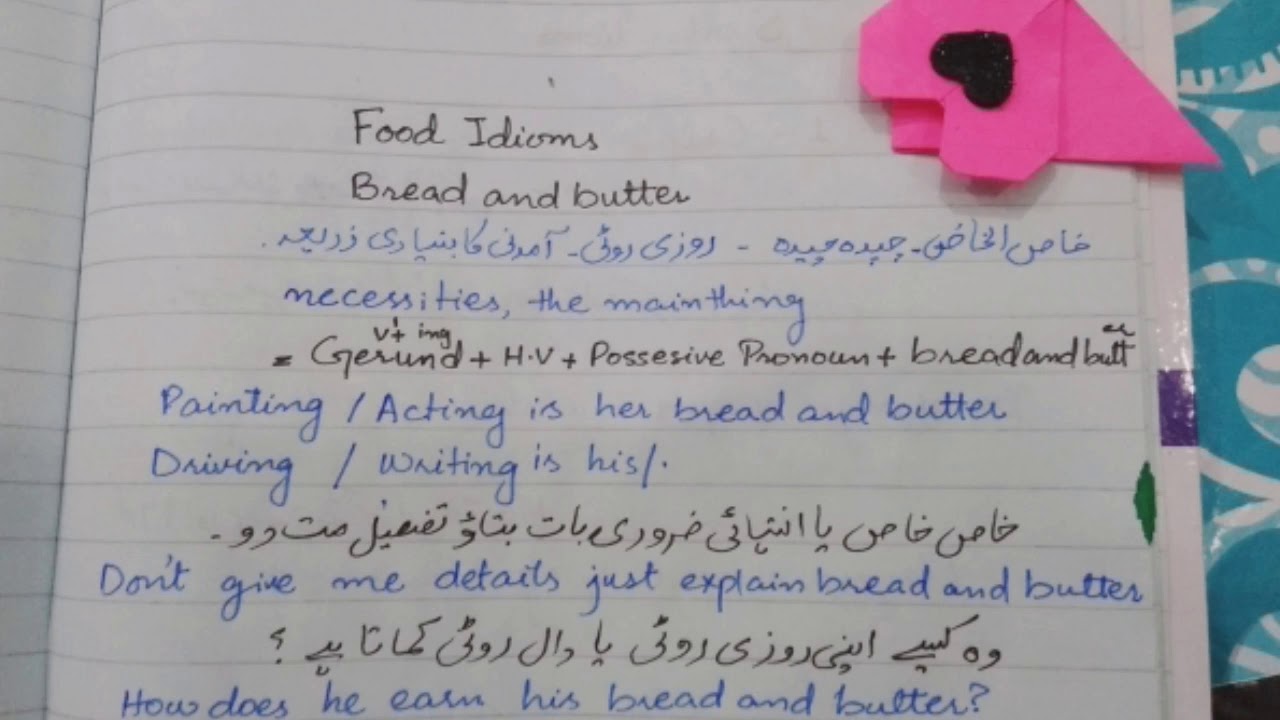 Food Idioms
Bread and butter
خاص الخاص۔ چیدہ چیدہ - روزی روٹی۔ آمدنی کا بنیادی ذریعہ.
necessities, the mainthing
v1+ ing
= Gerund + H.V + Possesive Pronoun + bread and butter
Painting / Acting is her bread and butter
Driving / Writing is his/.
خاص خاص یا انتہائی ضروری بات بتاؤ تفصیل مت دو۔
Don't give me details just explain bread and butter
وہ کیسے اپنی روزی روٹی یا دال روٹی کماتا ہے؟
How does he earn his bread and butter?